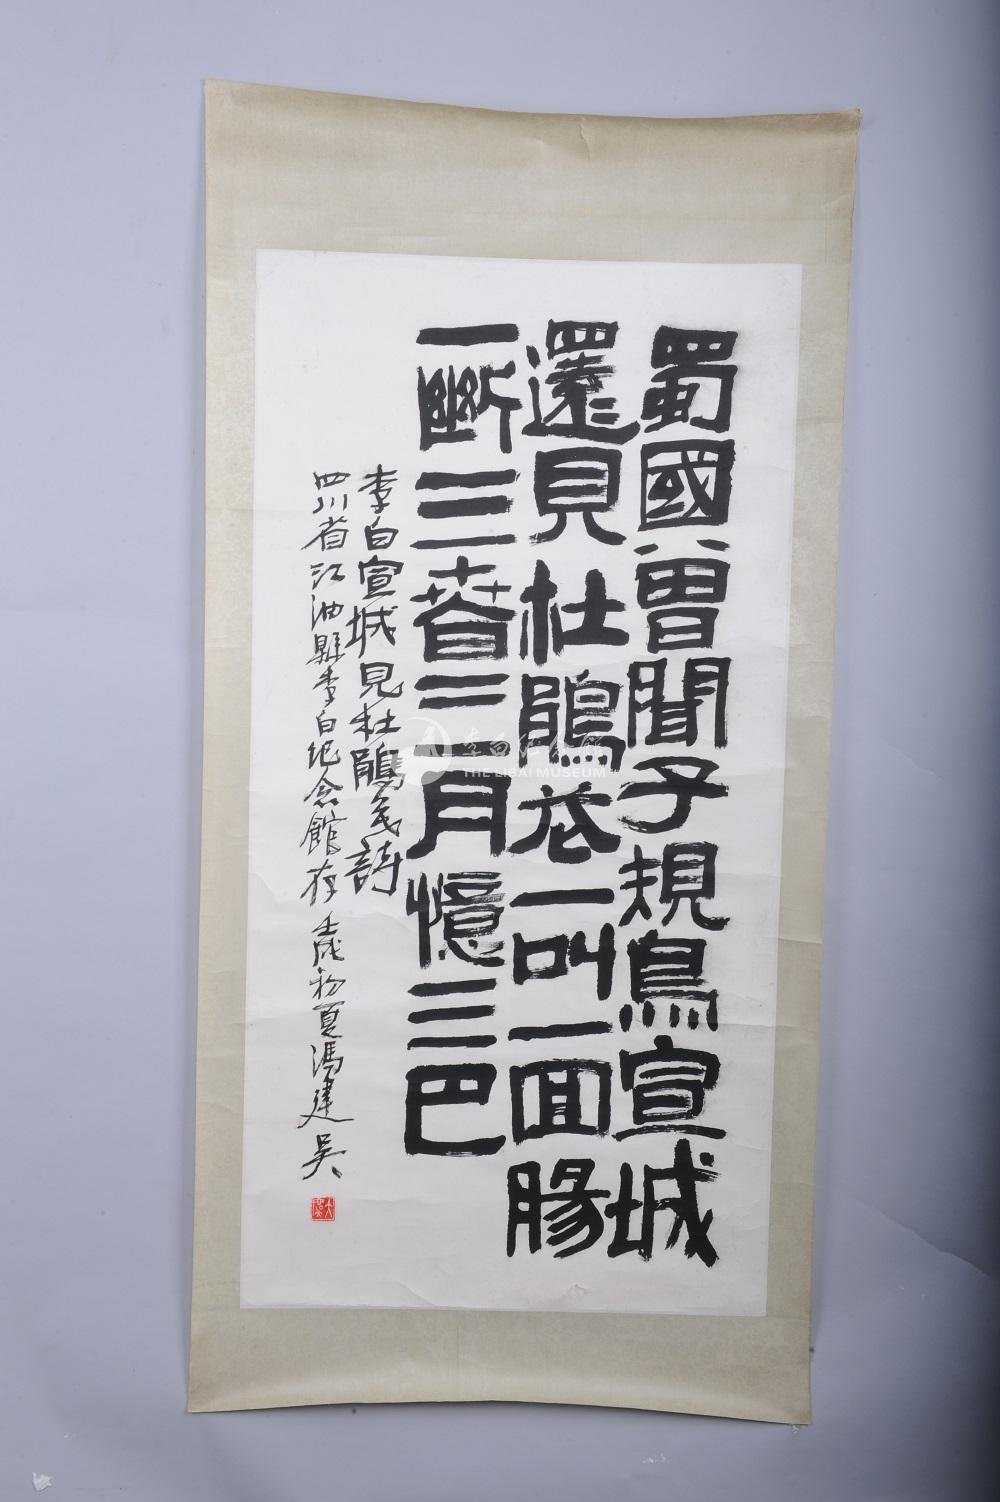 蜀國曾聞子規鳥宣城
還見杜鵑花一叫一回腸
一斷三春三月憶三巴
李白宣城見杜鵑花詩
四川省江油縣李白紀念館存 壬戌初夏馮建吳
李白纪念馆
THE LIBAI MUSEUM